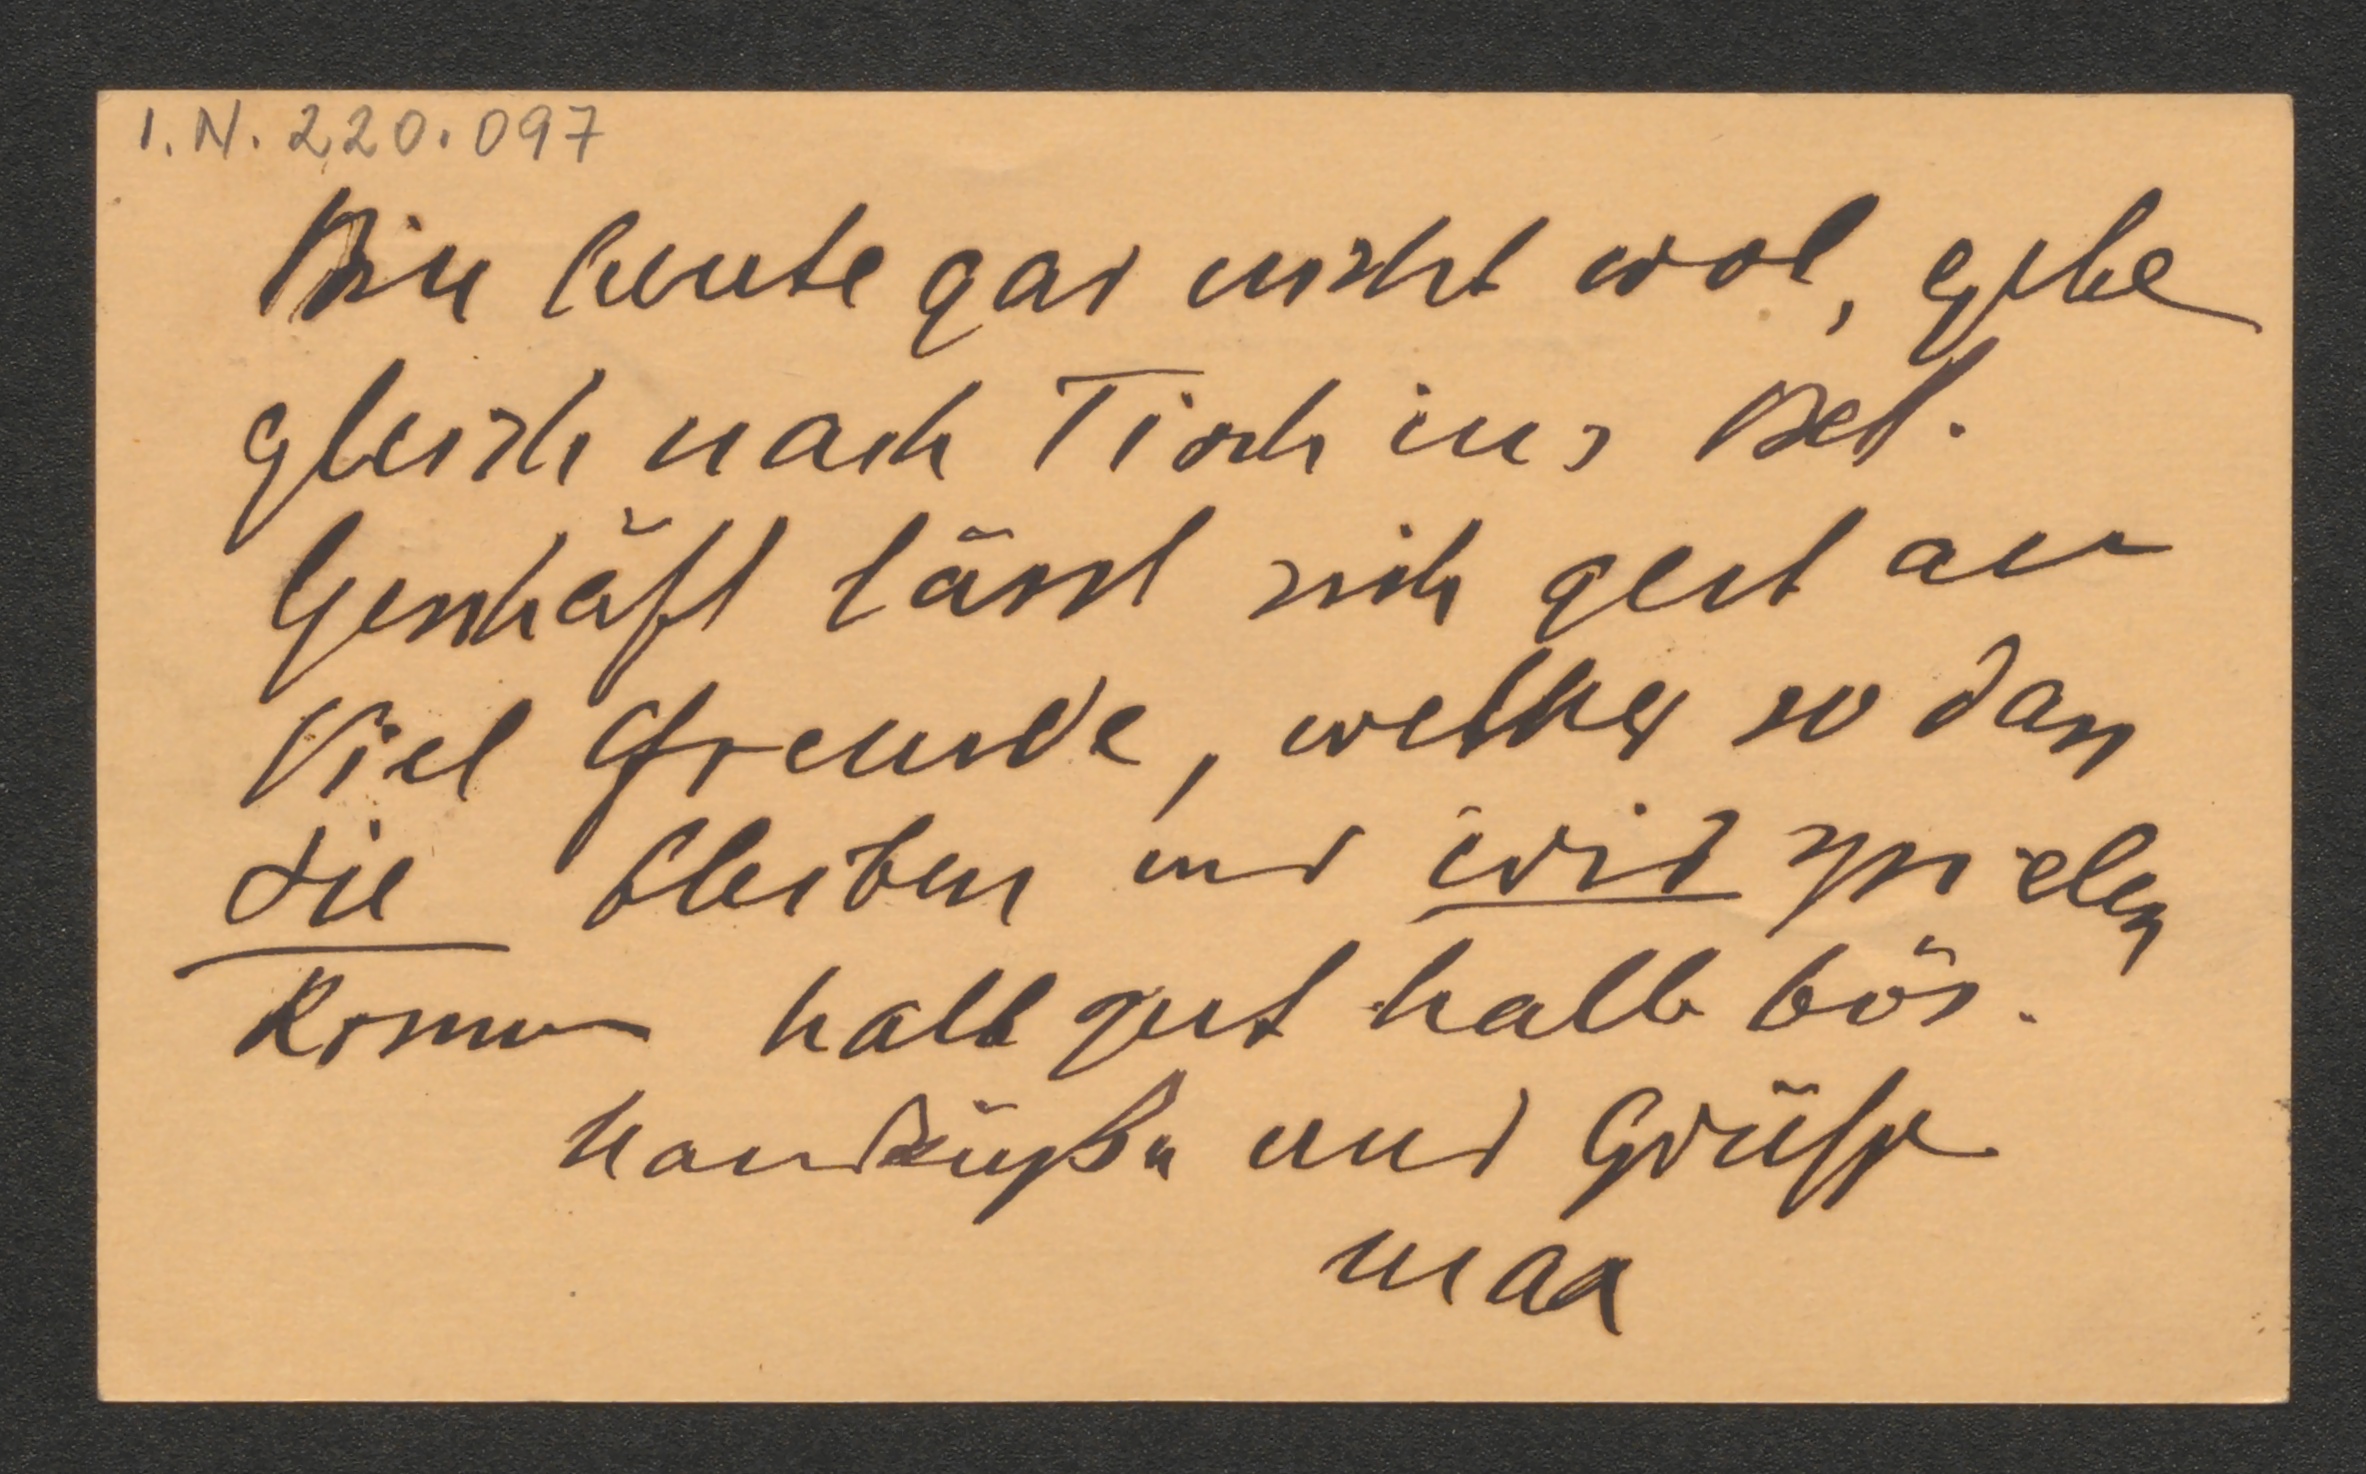 I.N. 220.097
Bin heute gar nicht wol, gehe
gleich nach Tisch ins Bett.
Geschäft lässt sich gut an
Viel Freunde, welche so dass
die bleiben und wird spielen
halb gut halb bös.
Handküsse und Grüsse
Max